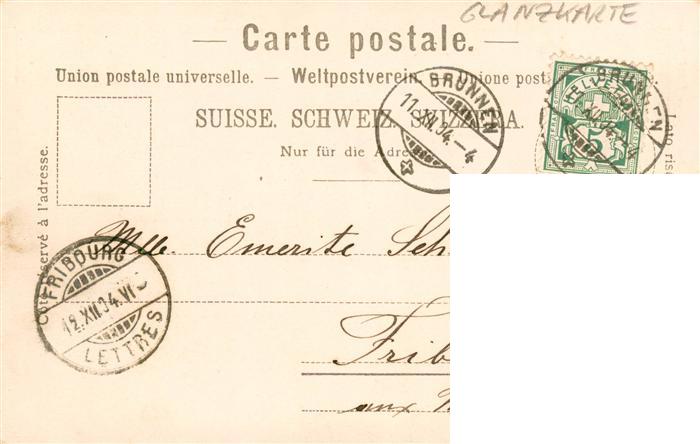 GLANZKARTE
— Carte postale. —
Union postale universelle. — Weltpostverein. Unione post
SUISSE. SCHWEIZ. SVIZZERA.
Nur für die Adre
Côté réservé à l'adresse.
BRUNNEN
11.XII.04.–4
BRUNNEN
HELVETIA
5
Mlle. Emerite Sch
FRIBOURG
12.XII.04.VI
LETTRES
Frib
aux